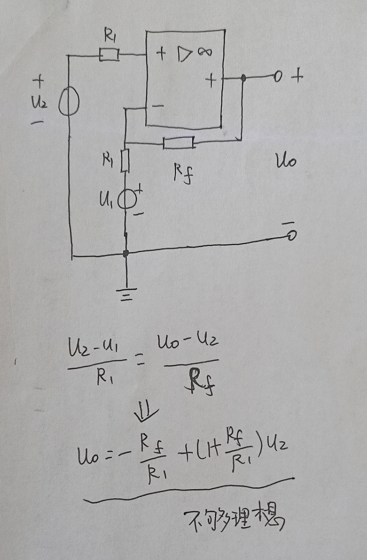 R₁
+ ▷ ∞
+
+
+
U₂
−
−
R₁
Rf
U₀
U₁
+
−
−
(U₂-U₁)/R₁ = (U₀-U₂)/Rf
⇓
U₀=-Rf/R₁ +(1+Rf/R₁)U₂
不够理想